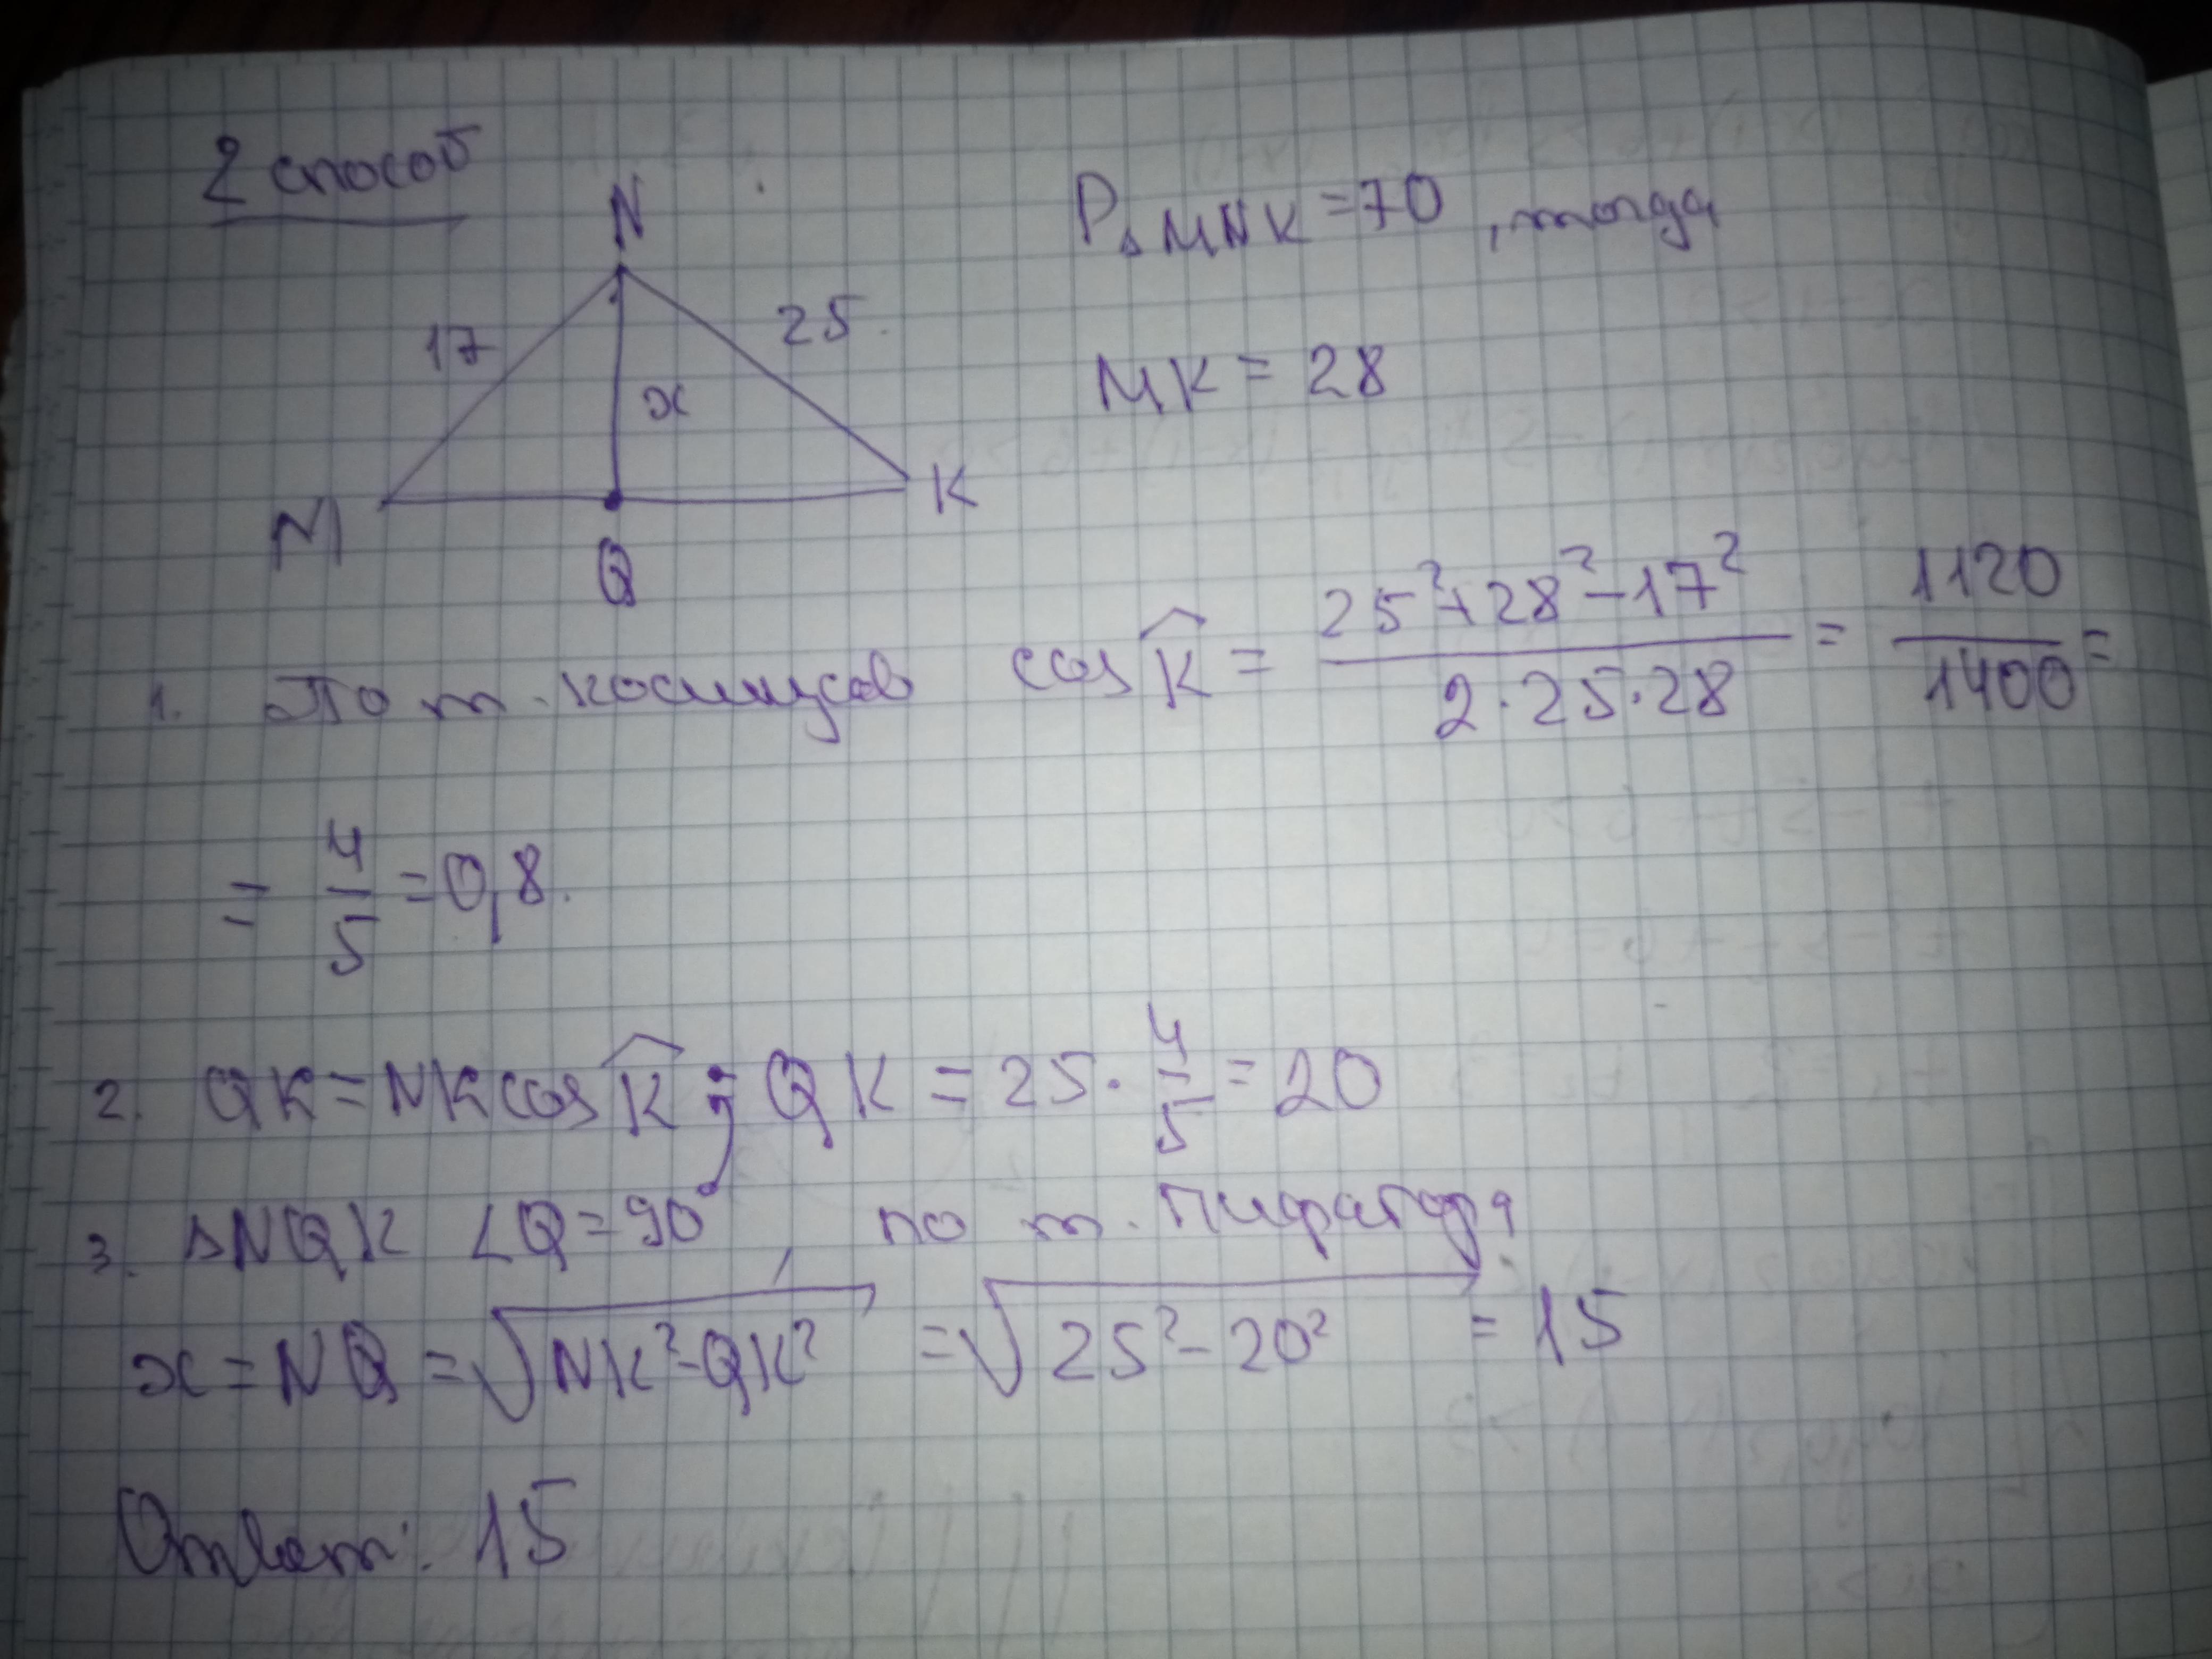 2 способ
N
P△MNK=70, тогда
17
25.
x
MK = 28
M
Q
K
1. По т. косинусов cos K̂ = (25²+28²−17²)/(2·25·28) = 1120/1400 =
= 4/5 = 0,8.
2. QK = NK cos K̂ ; QK = 25 · 4/5 = 20
3. △NQK ∠Q=90°, по т. Пифагора
x = NQ = √(NK²−QK²) = √(25²−20²) = 15
Ответ: 15